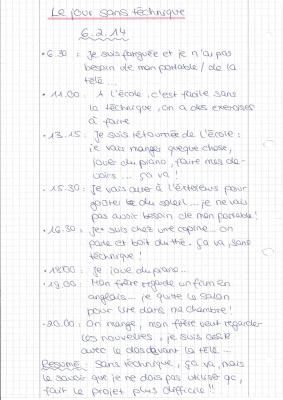 Le jour sans téchnique
6.2.14
• 6.30 : Je suis fatiguée et je n'ai pas
besoin de mon portable / de la
télé...
• 11.00 : A l'école, c'est facile sans
la téchnique, on a des exercises
à faire
• 13.15 : Je suis rétournée de l'école :
je vais manger queque chose,
jouer du piano, faire mes de-
voirs ... ça va!
• 15.30 : Je vais aller à l'extérieurs pour
goûter du soleil... je ne vais
pas avoir besoin de mon portable!
• 16.30 : Je suis chez une copine... on
parle et boit du thé. Ça va, sans
téchnique!
• 18.00 : Je joue du piano...
• 19.00 : Mon frère regarde un film en
anglais... je quitte le salon
pour lire dans ma chambre!
• 20.00 : On mange, mon frère veut regarder
les nouvelles, je suis assie
avec le dos devant la télé...
Resumé : Sans téchnique, ça va, mais
le savoir que je ne dois pas utiliser qc,
fait le projet plus difficile!!